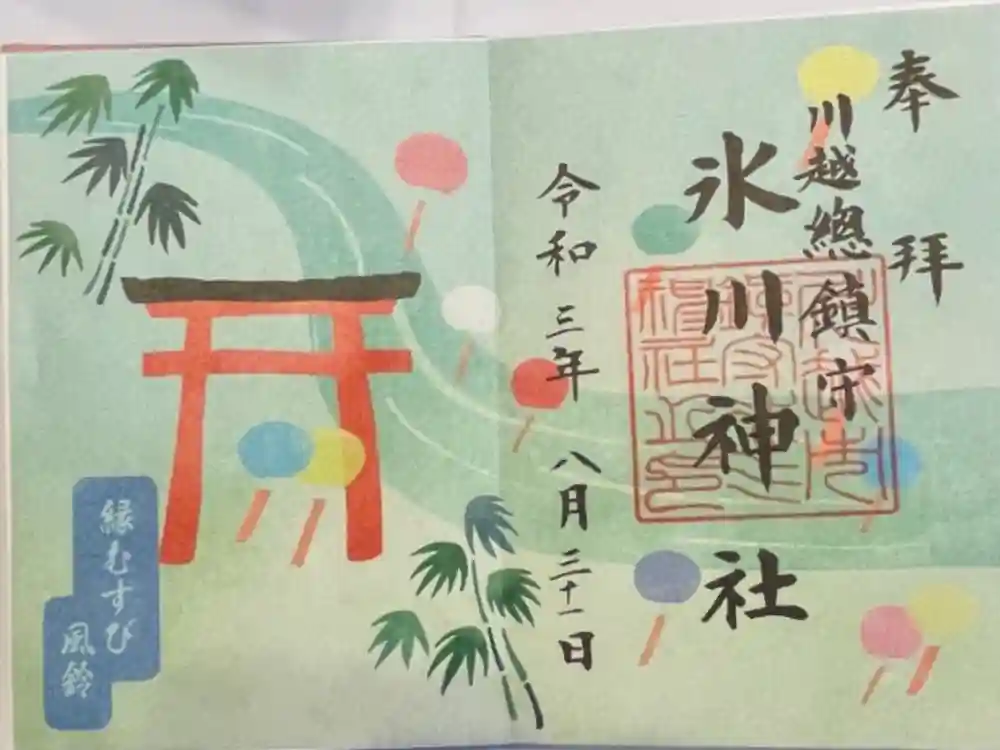 奉拝
川越總鎮守
氷川神社
令和三年八月三十一日
縁むすび
風鈴